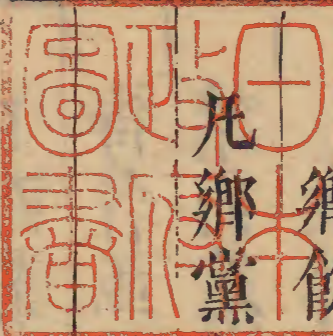 凡鄉黨
日本
政府
圖書